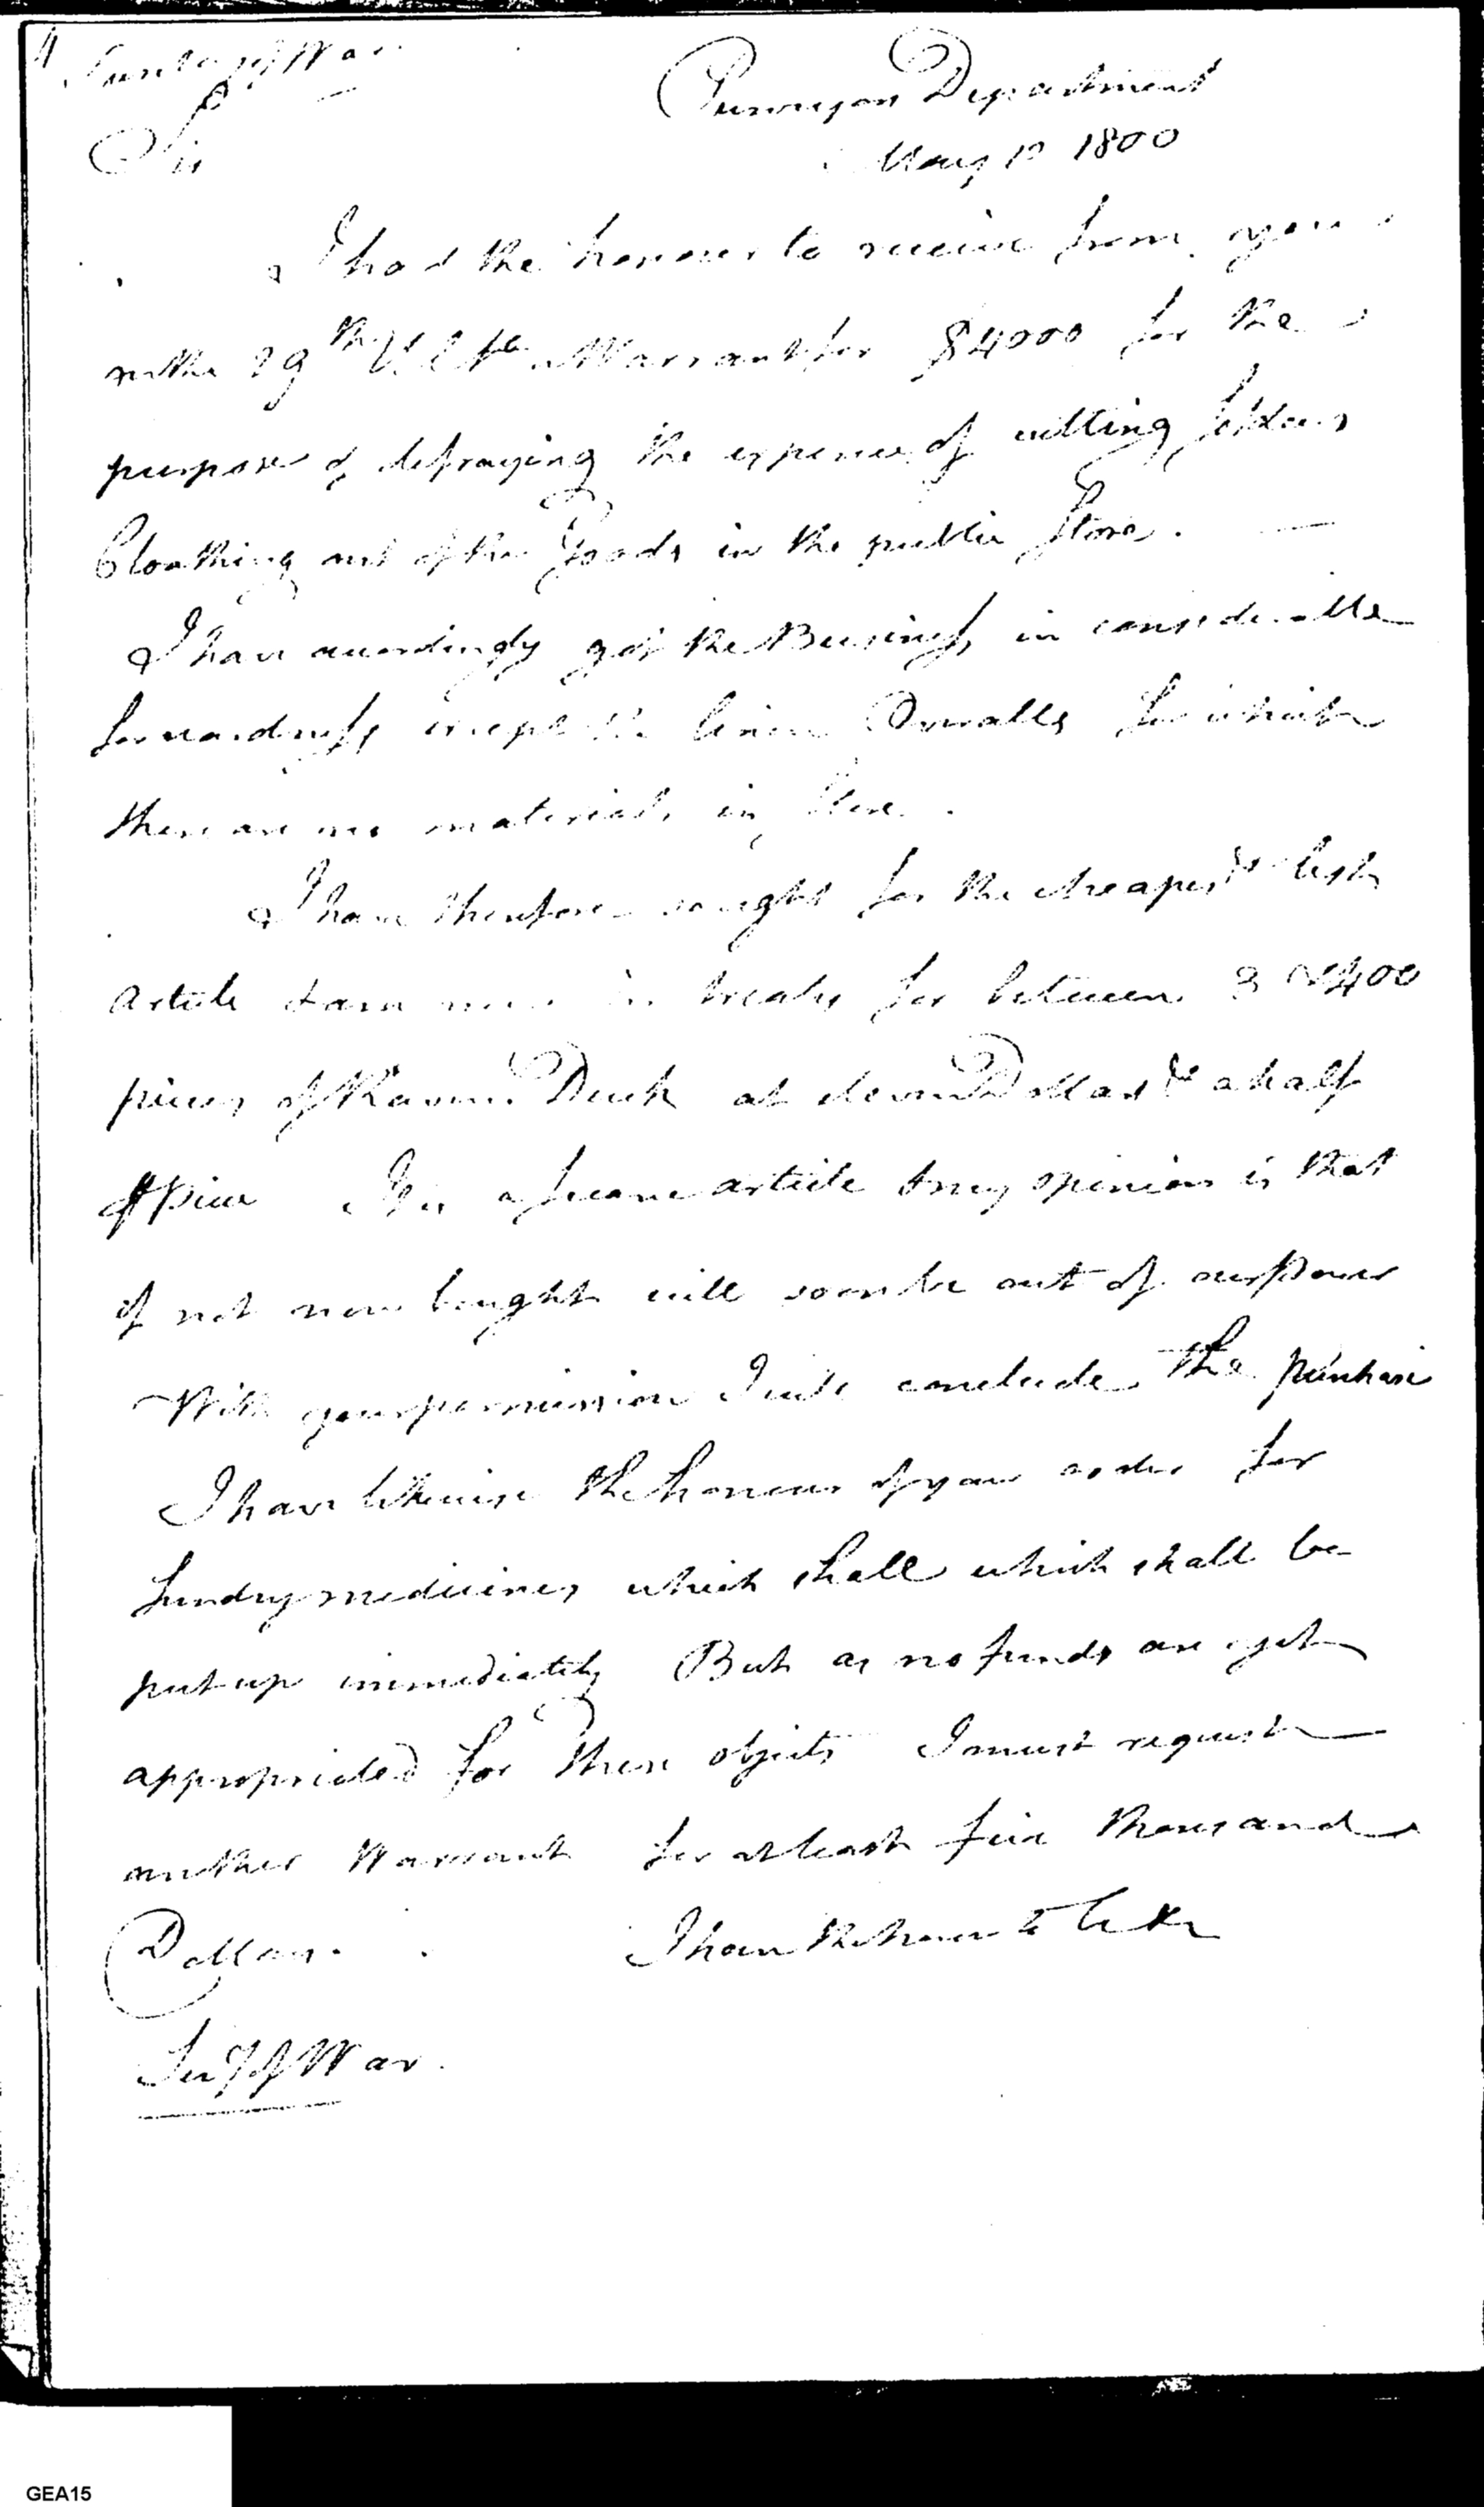 Secretary of War
Purveyors Department
Sir
May 1800
I had the honour to receive from you
on the 29th Ulto a Warrant for $4000 for the
purpose of defraying the expence of cutting
Cloathing out of the Goods in the public Store.
I have accordingly got the Business in considerable
forwardness except the linen Overalls for which
there are no materials in Store.
I have therefore sought for the cheapest & best
article & am now in treaty for between 3 & 400
pieces of Ravens Duck at eleven Dollars & a half
℔ piece It is a scarce article & my opinion is that
if not now bought will soon be out of our Power
With your permission I will conclude the purchase
I have likewise the honour of your order for
Sundry medicines which shall which shall be
put up immediately But as no funds are yet
appropriated for these objects I must request
another Warrant for at least five thousand
Dollars.
I have the honour to be &c
Secy of War.
GEA15